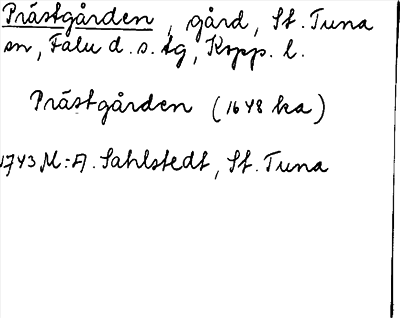 Prästgården, gård, St. Tuna
sn, Falu d. s. tg, Kopp. l.
Prästgården (1648 ka)
1743 M: A. Sahlstedt, St. Tuna